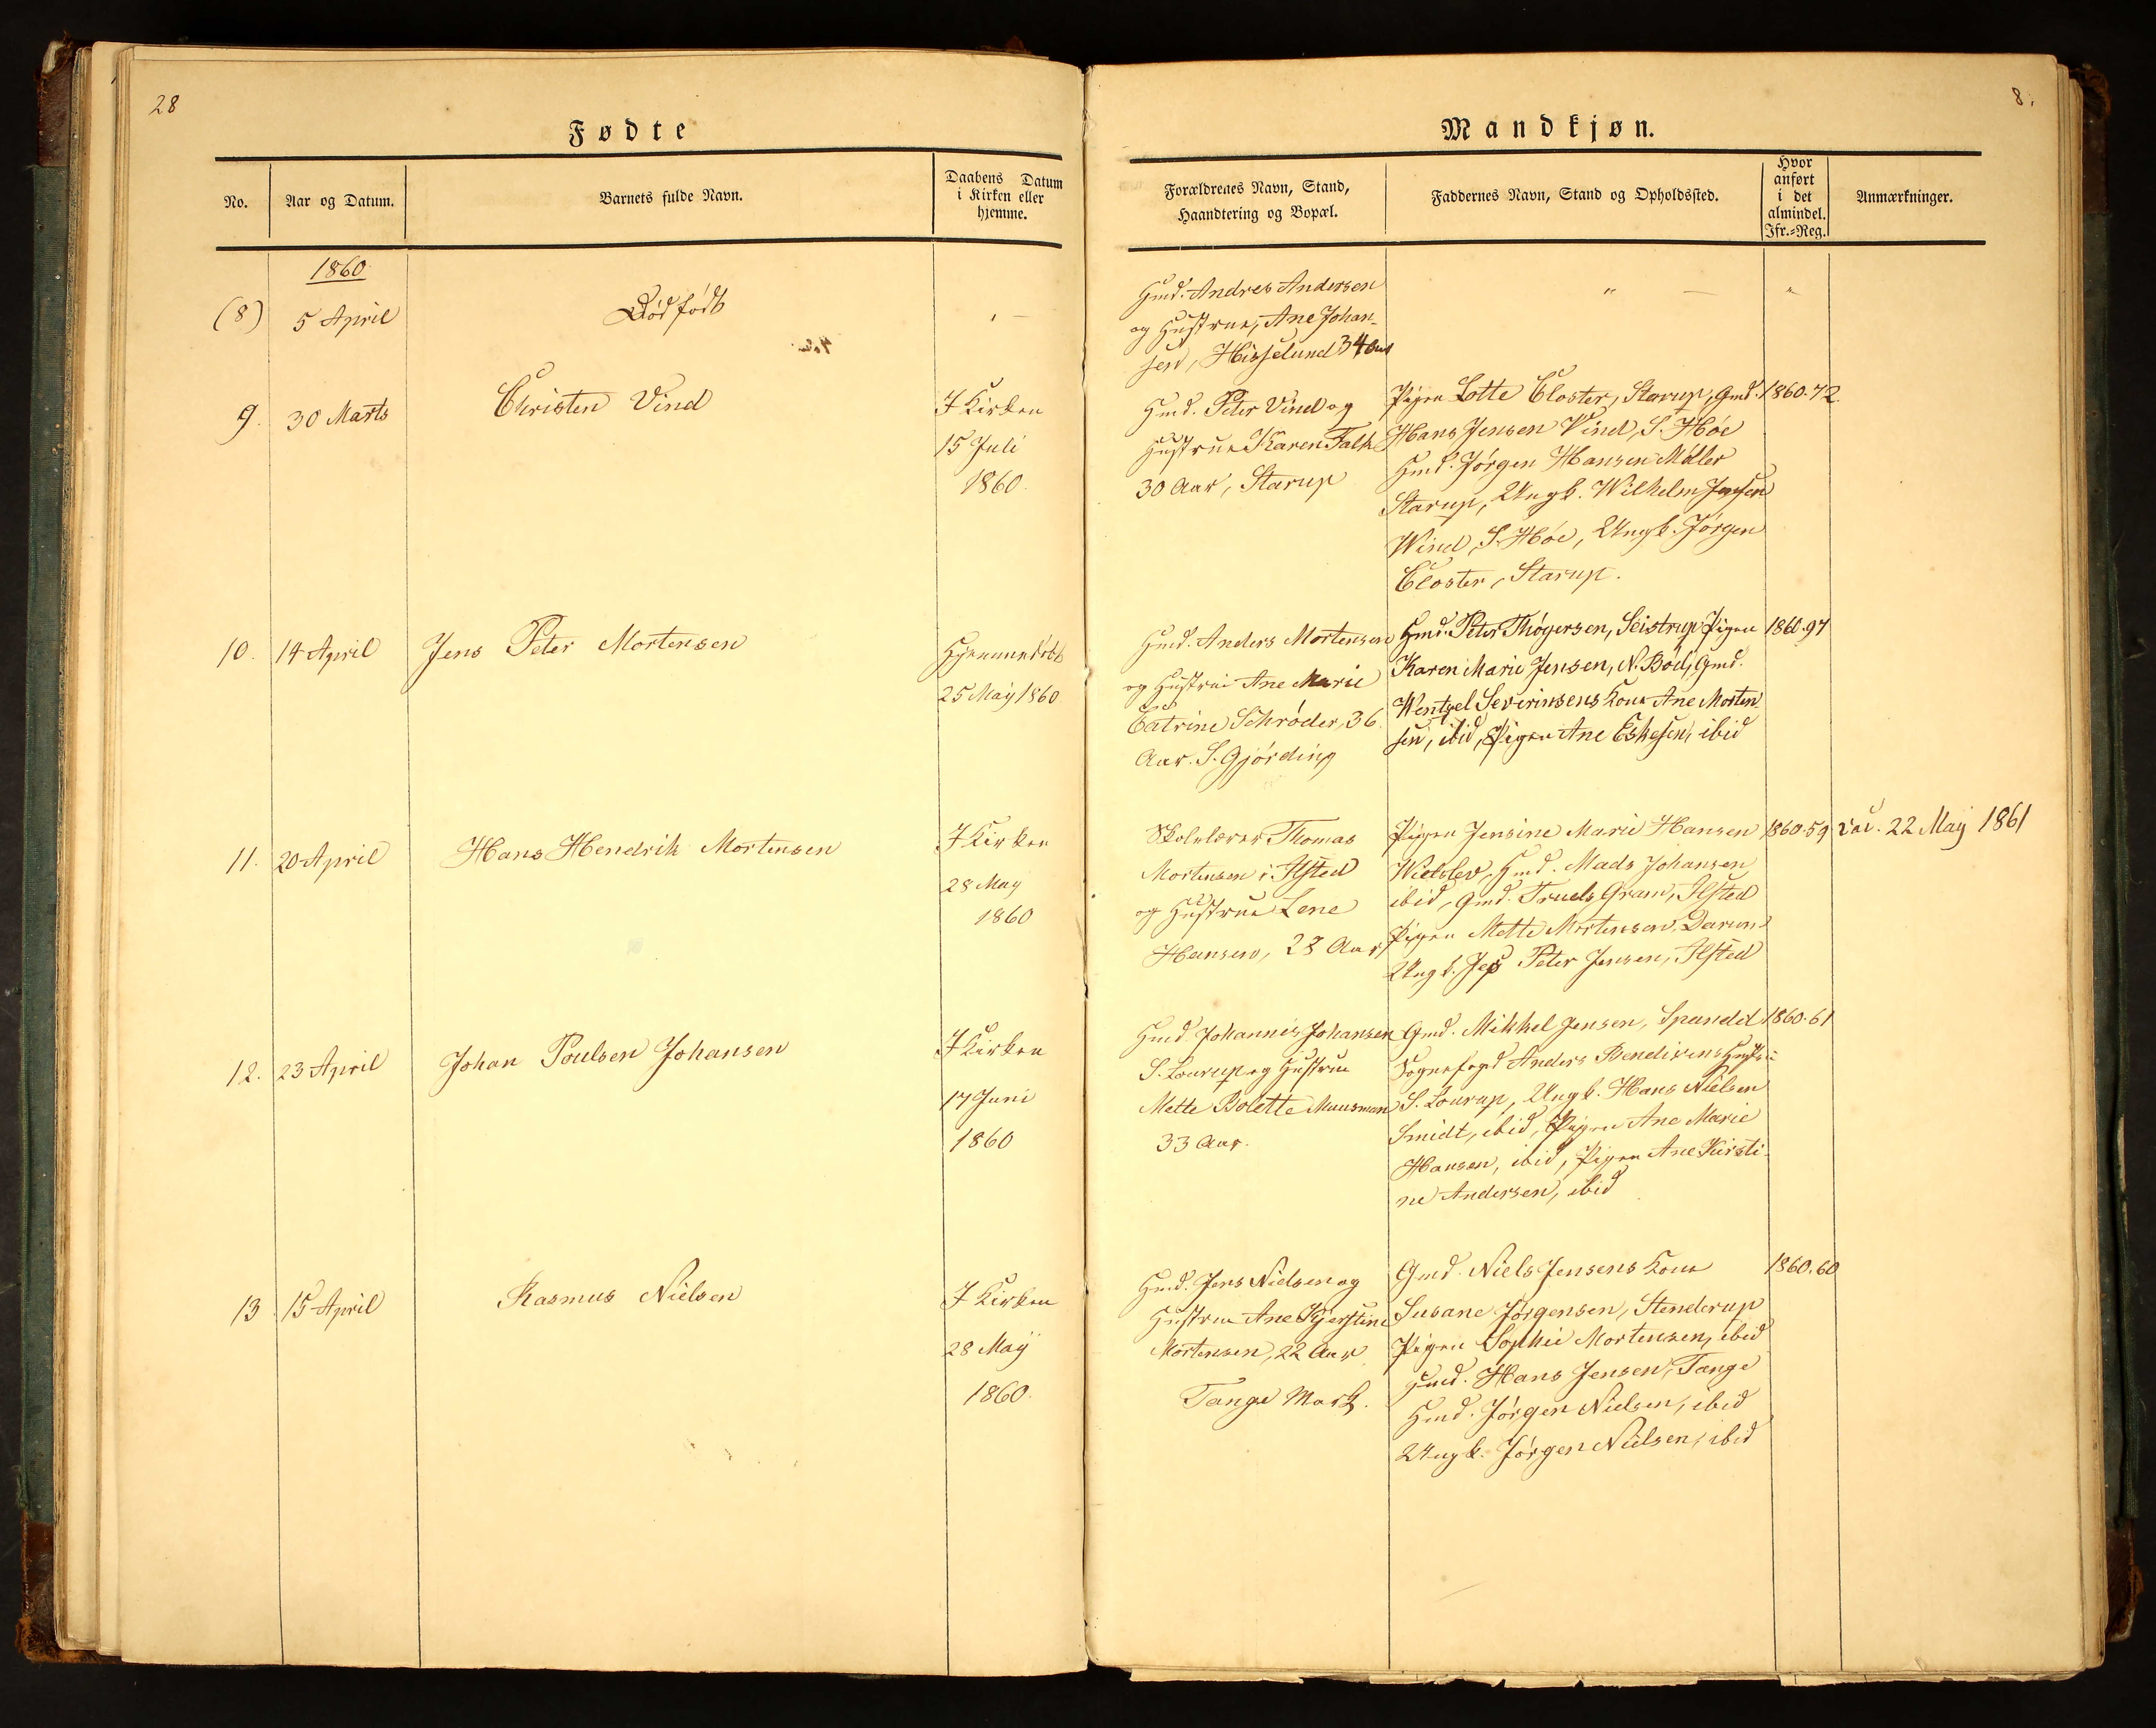 28
8.
Fødte
Mandkjøn.
No.
Aar og Datum.
Barnets fulde Navn.
Daabens Datum
i Kirken eller
hjemme.
Forældrenes Navn, Stand,
Haandtering og Bopæl.
Faddernes Navn, Stand og Opholdssted.
Hvor
anført
i det
almindel.
Jfr.-Reg.
Anmærkninger.
1860
(8)
5 April
Dødfødt
Hmd. Andres Andersen
og Hustrue, Ane Johan-
sen, Hisselund 34 Aar
9.
30 Marts
Christen Vind
I Kirken
15 Juli
1860.
Hmd. Peter Vind og
Hustrue Karen Falk
30 Aar, Starup
Pigen Lotte Closter, Starup, Gmd.
Hans Jensen Vind, S. Høe
Hmd. Jørgen Hansen Møller
Starup, Ungk. Wilhelm Jensen
Wind, S. Høe, Ungk. Jørgen
Closter, Starup.
1860.72.
10.
14 April
Jens Peter Mortensen
Hjemmedøbt
25 May 1860
Hmd. Anders Mortensen
og Hustrue Ane Marie
Catrine Schrøder, 36
Aar. S. Gjørding
Hmd. Peter Thøgersen, Seistrup Pigen
Karen Marie Jensen, N. Böel, Gmd.
Wentzel Severinsens Kone Ane Morten
sen, ibid, Pigen Ane Eskesen, ibid
1860.97
11.
20 April
Hans Hendrik Mortensen
I Kirken
28 May
1860
Skolelærer Thomas
Mortensen i Ilsted
og Hustrue Lene
Hansen, 28 Aar
Pigen Jensine Marie Hansen
Wietslev, Hmd. Mads Johansen
ibid, Gmd. Truels Gram, Ilsted
Pigen Mette Mortensen, Darum
Ungk. Jep Peter Jensen, Ilsted
1860.59
vac. 22 May 1861
12.
23 April
Johan Poulsen Johansen
I Kirken
17 Juni
1860
Hmd. Johannis Johansen
S. Lourup og Hustrue
Mette Bolette Muusman
33 Aar.
Gmd. Mikkel Jensen, Spandd
Sognefoged Anders Bendixens Hustrue
S. Lourup, Ungk. Hans Nielsen
Smidt, ibid, Pigen Ane Marie
Hansen, ibid, Pigen Ane Kirsti-
ne Andersen, ibid
1860.61
13
15 April
Rasmus Nielsen
I Kirken
28 May
1860.
Hmd. Jens Nielsen og
Hustrue Ane Kjerstine
Mortensen, 22 Aar
Tange Mark.
Gmd. Niels Jensens Kone
Susane Jørgensen, Stenderup
Pigen Sophie Mortensen, ibid
Hmd. Hans Jensen, Tange
Hmd. Jørgen Nielsen, ibid
Ungk. Jørgen Nielsen, ibid
1860.60